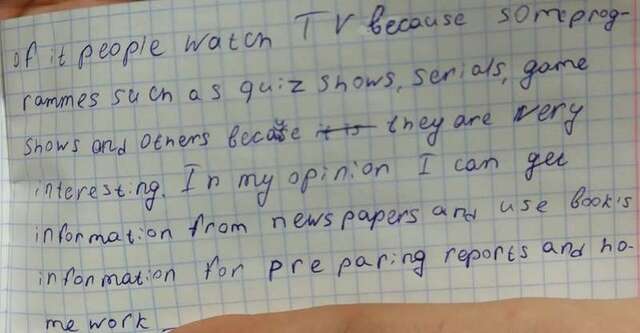 of it people watch TV because someprog-
rammes such as quiz shows, serials, game
shows and others becaŝe it is they are very
interesting. In my opinion I can get
information from newspapers and use book's
information for preparing reports and ho-
me work